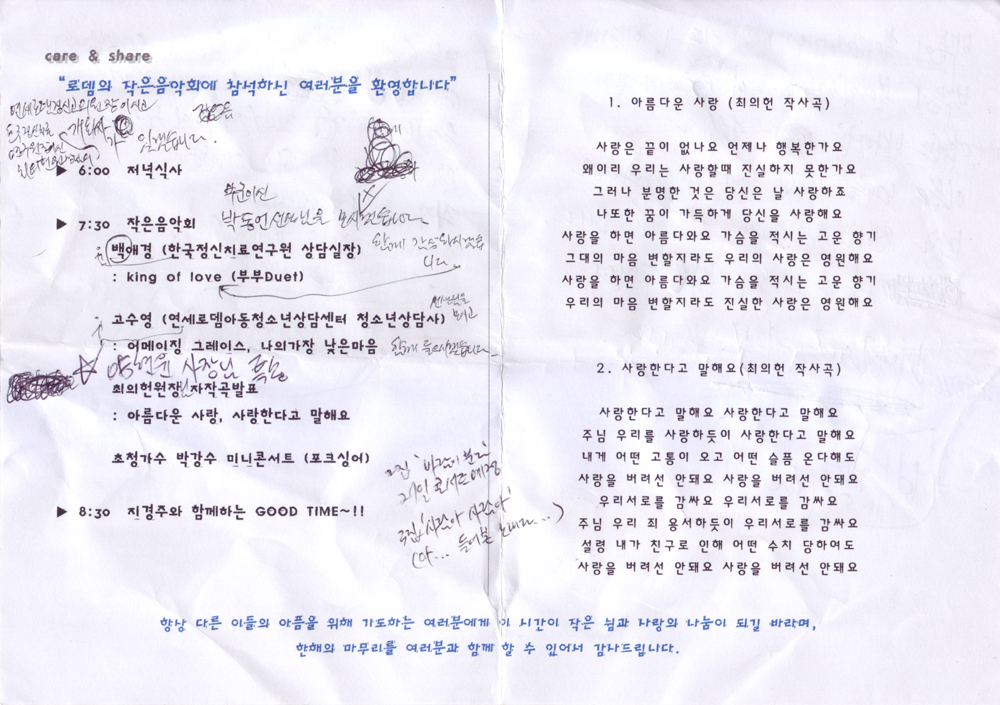 care & share
“로뎀의 작은음악회에 참석하신 여러분을 환영합니다”
개회사가 있겠습니다.
▶ 6:00 저녁식사
박동언 선생님을 모시겠습니다.
▶ 7:30 작은음악회
백애경 (한국정신치료연구원 상담실장)
함께 감상하시겠습니다
: king of love (부부Duet)
고수영 (연세로뎀아동청소년상담센터 청소년상담사)
선생님을 모시고
: 어메이징 그레이스, 나의가장 낮은마음
함께 들으시겠습니다
사장님 특송
최의헌원장님자작곡발표
: 아름다운 사랑, 사랑한다고 말해요
초청가수 박강수 미니콘서트 (포크싱어)
2집 '바람이 분다'
개인 콘서트 예정
▶ 8:30 진경주와 함께하는 GOOD TIME~!!
1. 아름다운 사랑 (최의헌 작사곡)
사랑은 끝이 없나요 언제나 행복한가요
왜이리 우리는 사랑할때 진실하지 못한가요
그러나 분명한 것은 당신은 날 사랑하죠
나또한 꿈이 가득하게 당신을 사랑해요
사랑을 하면 아름다와요 가슴을 적시는 고운 향기
그대의 마음 변할지라도 우리의 사랑은 영원해요
사랑을 하면 아름다와요 가슴을 적시는 고운 향기
우리의 마음 변할지라도 진실한 사랑은 영원해요
2. 사랑한다고 말해요(최의헌 작사곡)
사랑한다고 말해요 사랑한다고 말해요
주님 우리를 사랑하듯이 사랑한다고 말해요
내게 어떤 고통이 오고 어떤 슬픔 온다해도
사랑을 버려선 안돼요 사랑을 버려선 안돼요
우리서로를 감싸요 우리서로를 감싸요
주님 우리 죄 용서하듯이 우리서로를 감싸요
설령 내가 친구로 인해 어떤 수치 당하여도
사랑을 버려선 안돼요 사랑을 버려선 안돼요
항상 다른 이들의 아픔을 위해 기도하는 여러분에게 이 시간이 작은 쉼과 사랑의 나눔이 되길 바라며,
한해의 마무리를 여러분과 함께 할 수 있어서 감사드립니다.